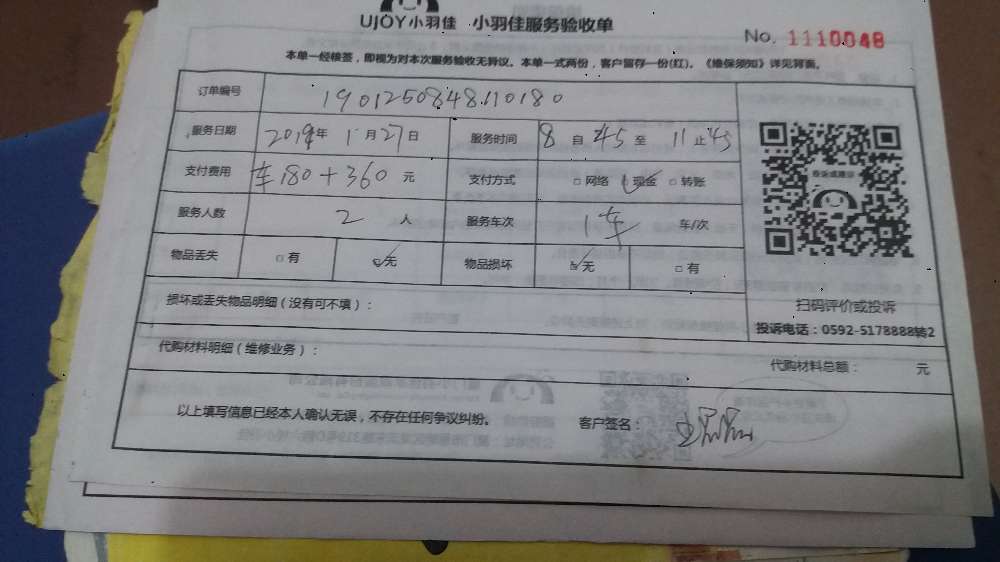 UJOY小羽佳 小羽佳服务验收单
No. 1110048
本单一经核签，即视为对本次服务验收无异议。本单一式两份，客户留存一份(红)。《维保须知》详见背面。
订单编号 1901250848110180
服务日期 2019年 1月27日 服务时间 8 自 45 至 11 止 45
支付费用 车180+360 元 支付方式 □网络 ☑现金 □转账
服务人数 2 人 服务车次 1车 车/次
物品丢失 □有 ☑无 物品损坏 ☑无 □有
损坏或丢失物品明细（没有可不填）：
扫码评价或投诉
投诉电话：0592-5178888转2
代购材料明细（维修业务）：
代购材料总额： 元
以上填写信息已经本人确认无误，不存在任何争议纠纷。 客户签名：